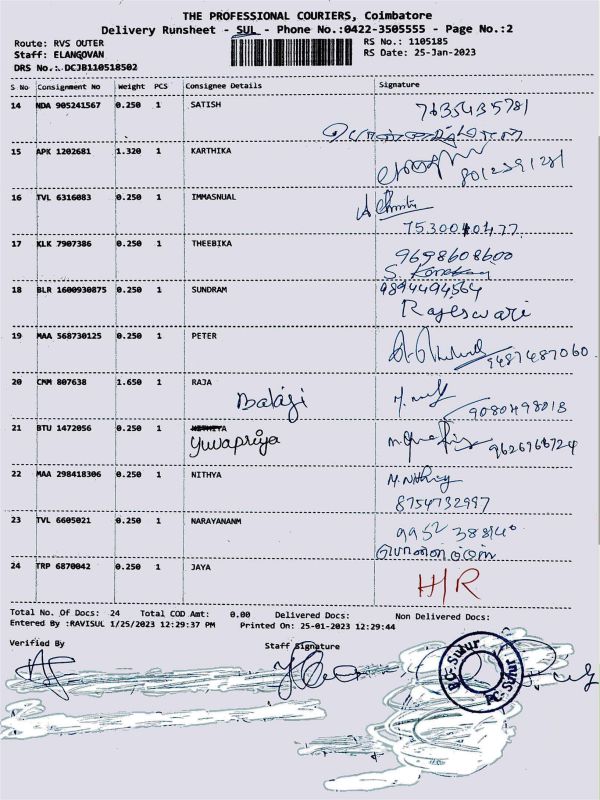 THE PROFESSIONAL COURIERS, Coimbatore
Delivery Runsheet - SUL - Phone No.:0422-3505555 - Page No.:2
Route: RVS OUTER RS No.: 1105185
Staff: ELANGOVAN RS Date: 25-Jan-2023
DRS No.: DCJB110518502
S No Consignment No Weight PCS Consignee Details Signature
14 NDA 905241567 0.250 1 SATISH 7635435781
15 APK 1202681 1.320 1 KARTHIKA
16 TVL 6316083 0.250 1 IMMASNUAL
17 KLK 7907386 0.250 1 THEEBIKA 9698608600
18 BLR 1600930875 0.250 1 SUNDRAM 9894494564
Rajeswari
19 MAA 568730125 0.250 1 PETER
9487487060
20 CMM 807638 1.650 1 RAJA
Balaji 9080498013
21 BTU 1472056 0.250 1
Yuvapriya 9626766724
22 MAA 298418306 0.250 1 NITHYA M.Nithiya
8754732997
23 TVL 6605021 0.250 1 NARAYANANM
24 TRP 6870042 0.250 1 JAYA H/R
Total No. Of Docs: 24 Total COD Amt: 0.00 Delivered Docs: Non Delivered Docs:
Entered By :RAVISUL 1/25/2023 12:29:37 PM Printed On: 25-01-2023 12:29:44
Verified By Staff Signature